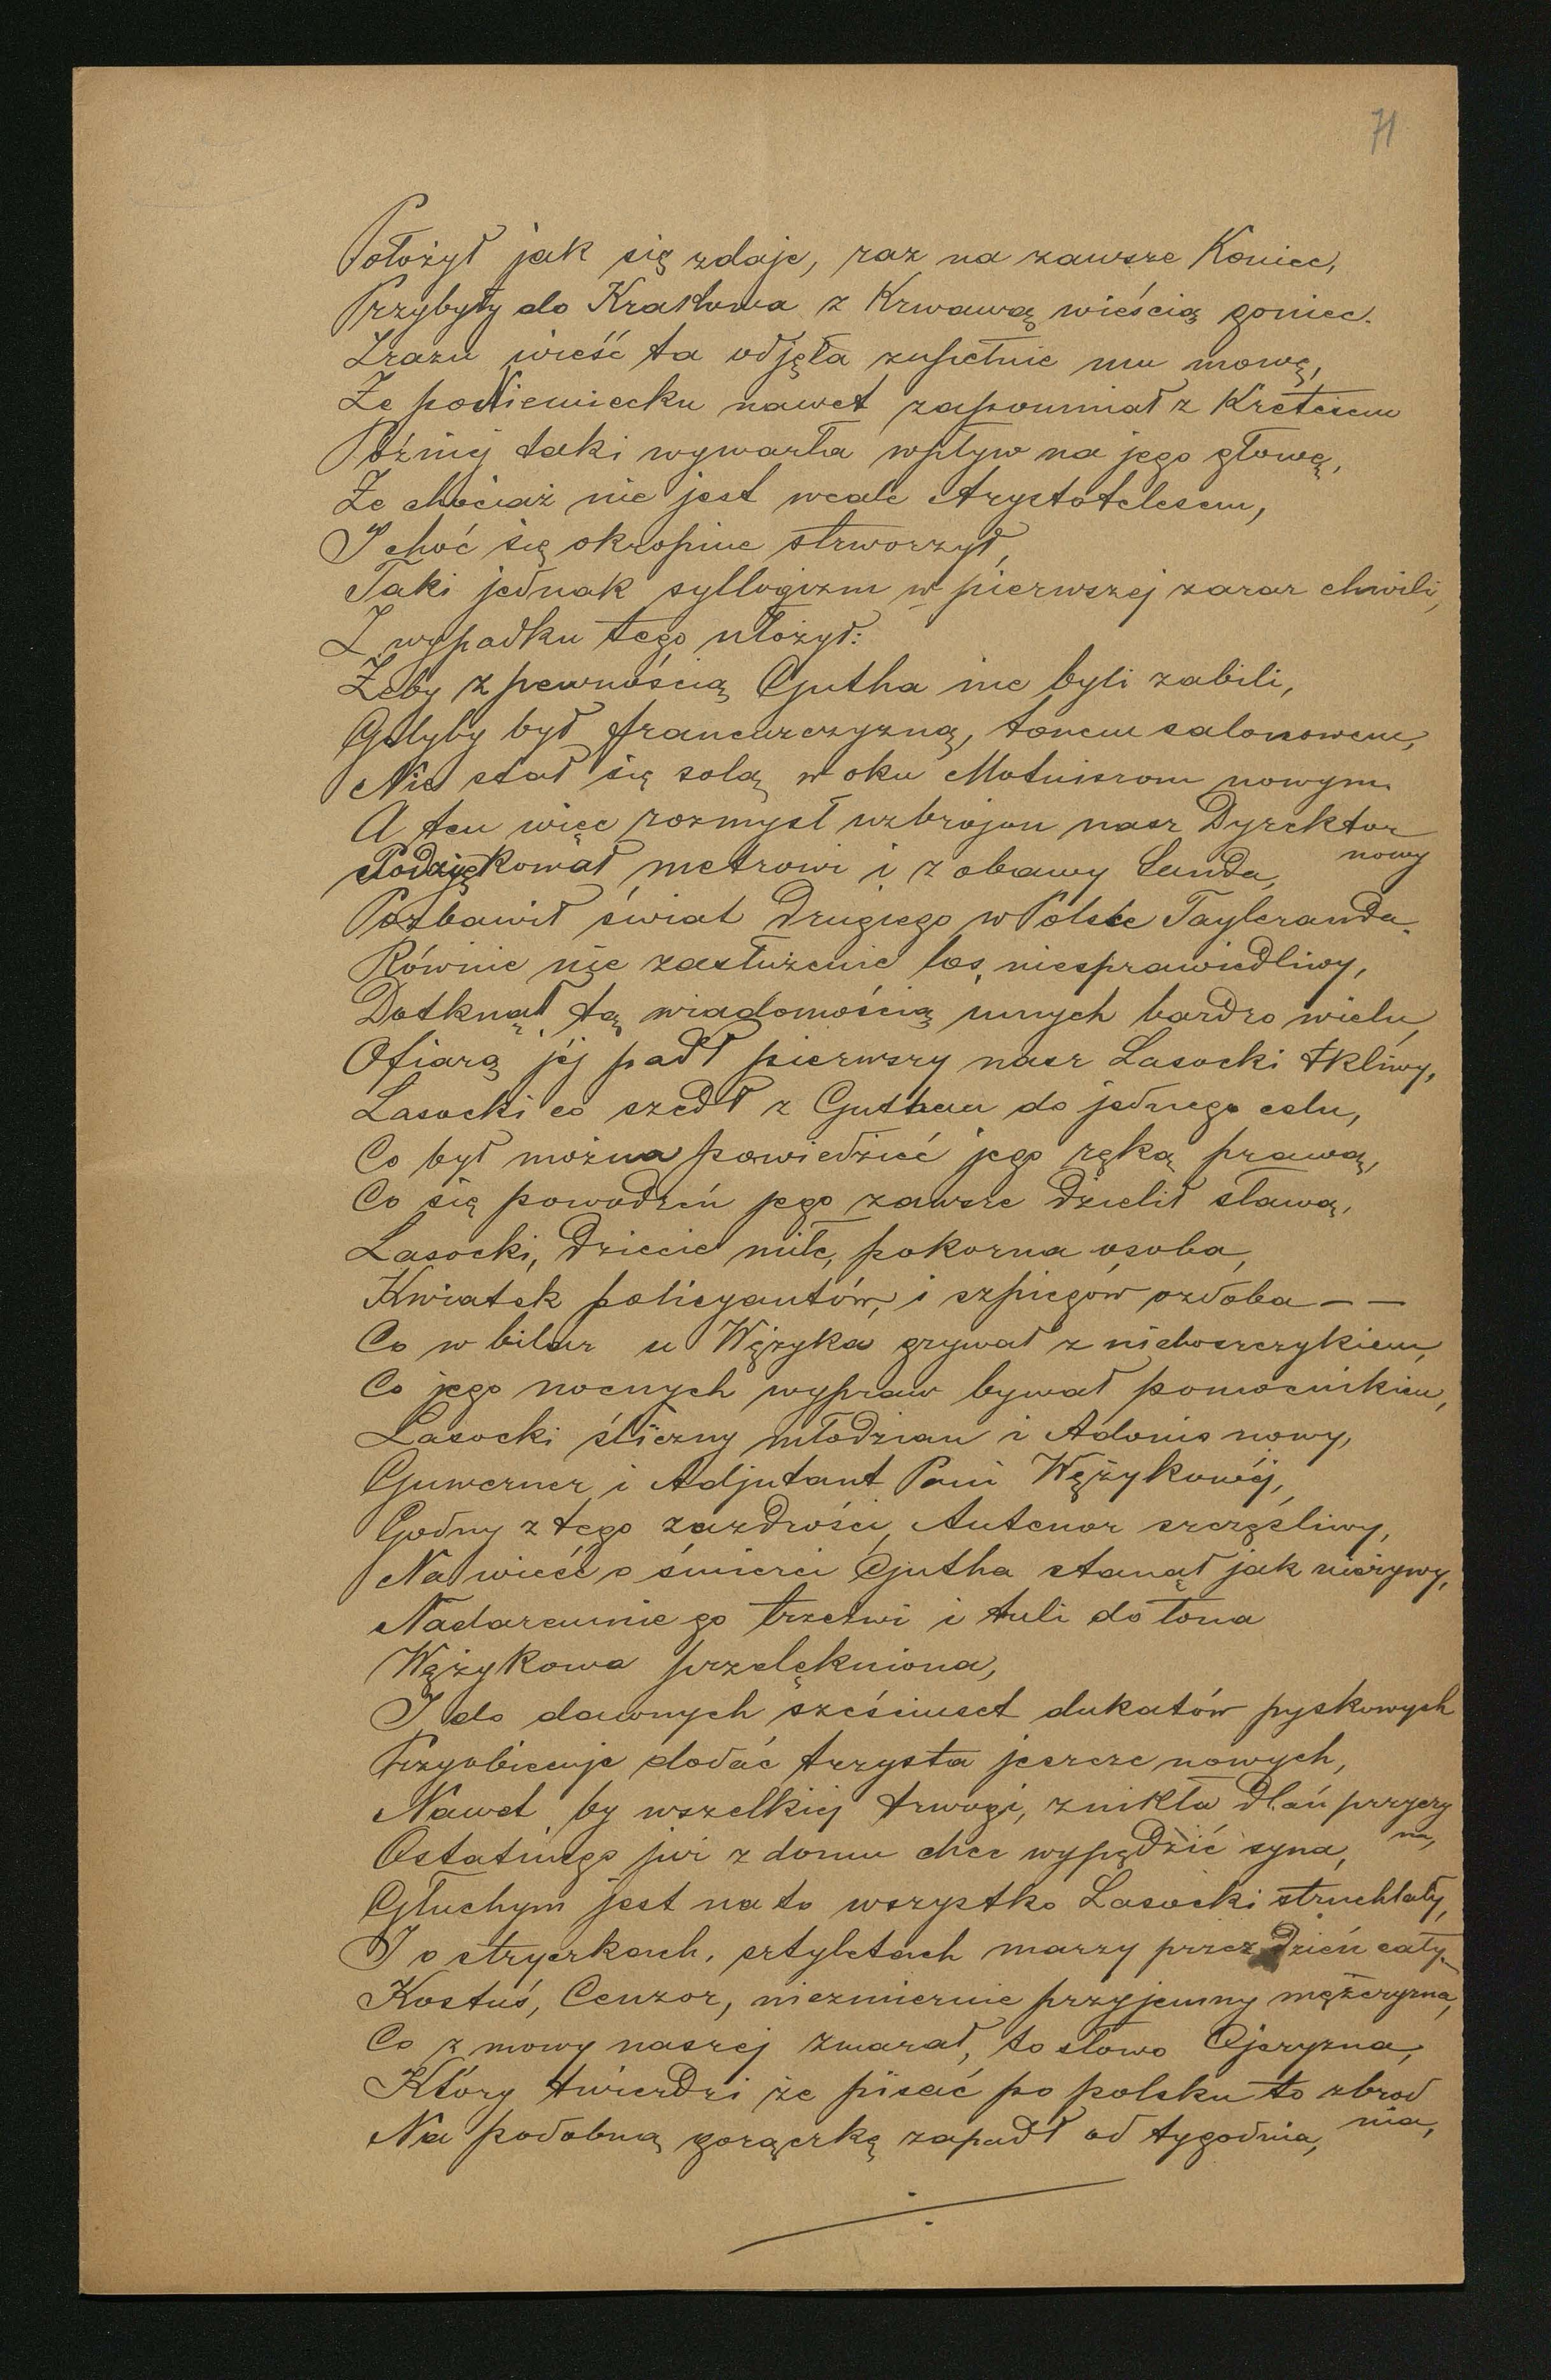 71
Położył jak się zdaje, raz na zawsze Koniec,
Przybyły do Krakowa z Krwawą wieścią goniec.
Zrazu wieść ta odjęła zupełnie mu mowę,
Że poNiemiecku nawet zapomniał z Kretesem
Później taki wywarła wpływ na jego głowę,
Że chociaż nie jest wcale Arystotelesem,
I choć się okropnie strworzył,
Taki jednak syllogizm w pierwszej zaraz chwili,
Z wypadku tego ułożył:
Żeby z pewnością Gutha nie byli zabili,
Gdyby był francuzczyzną, tonem salonowem,
Nie stał się solą w oku Motniszom nowym.
A ten więc rozmysł uzbrojon nasz Dyrektor nowy
Podziękował metrowi i z obawy Sanda,
Pozbawił świat drugiego w Polsce Tayleranda.
Równie nie zasłużenie los niesprawiedliwy,
Dotknął tą wiadomością innych bardzo wielu,
Ofiarą jéj padł pierwszy nasz Lasocki tkliwy,
Lasocki co szedł z Guthem do jednego celu,
Co był można powiedzieć jego ręką prawą,
Co się powodzeń jego zawsze dzielił sławą,
Lasocki, dziecie miłe, pokorna osoba,
Kwiatek policyantów, i szpiegów ozdoba – –
Co w bilar u Wężyka grywał z nieboszczykiem,
Co jego nocnych wypraw bywał pomocnikiem,
Lasocki śliczny młodzian i Adonis nowy,
Guwerner i Adjutant Pani Wężykowéj,
Godny z tego zazdrości, Antenor szczęśliwy,
Na wieść o śmierci Gutha stanął jak nieżywy,
Nadaremnie go trzeźwi i tuli do łona
Wężykowa przelękniona,
I do dawnych sześciuset dukatów pyskowych
Przyobiecuje dodać trzysta jeszcze nowych,
Nawet by wszelkiej trwogi, znikła dlań przyczyna,
Ostatniego już z domu chce wypędzić syna,
Głuchym jest na to wszystko Lasocki struchlały,
I o stryczkach, sztyletach marzy przez dzień cały.
Kostuś, Cenzor, niezmiernie przyjemny mężczyzna,
Co z mowy naszej zmazał, to słowo Ojczyzna,
Który twierdzi że pisać po polsku to zbrodnia,
Na podobną gorączkę zapadł od tygodnia,